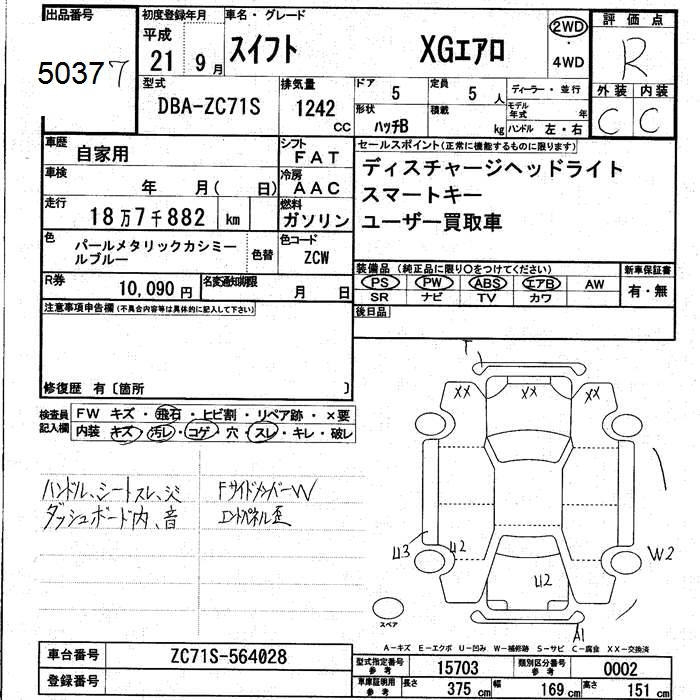 出品番号 初度登録年月 車名・グレード 評価点
50377 平成 21 9月 スイフト XGエアロ 2WD・4WD R
型式 排気量 ドア 5 定員 5人 ディーラー・並行 外装 内装
DBA-ZC71S 1242cc 形状 ハッチB 積載 kg モデル年式 年 C C
ハンドル 左・右
車歴 自家用 シフト FAT セールスポイント(正常に機能するものに限ります)
車検 年 月( 日) 冷房 AAC ディスチャージヘッドライト
スマートキー
走行 18万7千882 km 燃料 ガソリン ユーザー買取車
色 パールメタリックカシミールブルー 色替 色コード ZCW
装備品(純正品に限り○をつけてください) 新車保証書
R券 10,090円 名変通知期限 月 日 PS PW ABS エアB AW 有・無
SR ナビ TV カワ
注意事項申告欄(不具合内容等は具体的に記入して下さい) 後日品
修復歴 有〔箇所 〕
検査員記入欄 FW キズ・飛石・ヒビ割・リペア跡・×要
内装 キズ・汚レ・コゲ・穴・スレ・キレ・破レ
ハンドル、シートスレ、シミ Fサイドメンバーw
ダッシュボード内、音 エンドパネル歪
T
XX XX XX
U3 U2 U2 W2
A1
スペア
A-キズ E-エクボ U-凹み W-補修跡 S-サビ C-腐食 XX-交換済
車台番号 ZC71S-564028 型式指定番号 参考 15703 類別区分番号 参考 0002
登録番号 車庫証明用 参考 長さ 375cm 幅 169cm 高さ 151cm